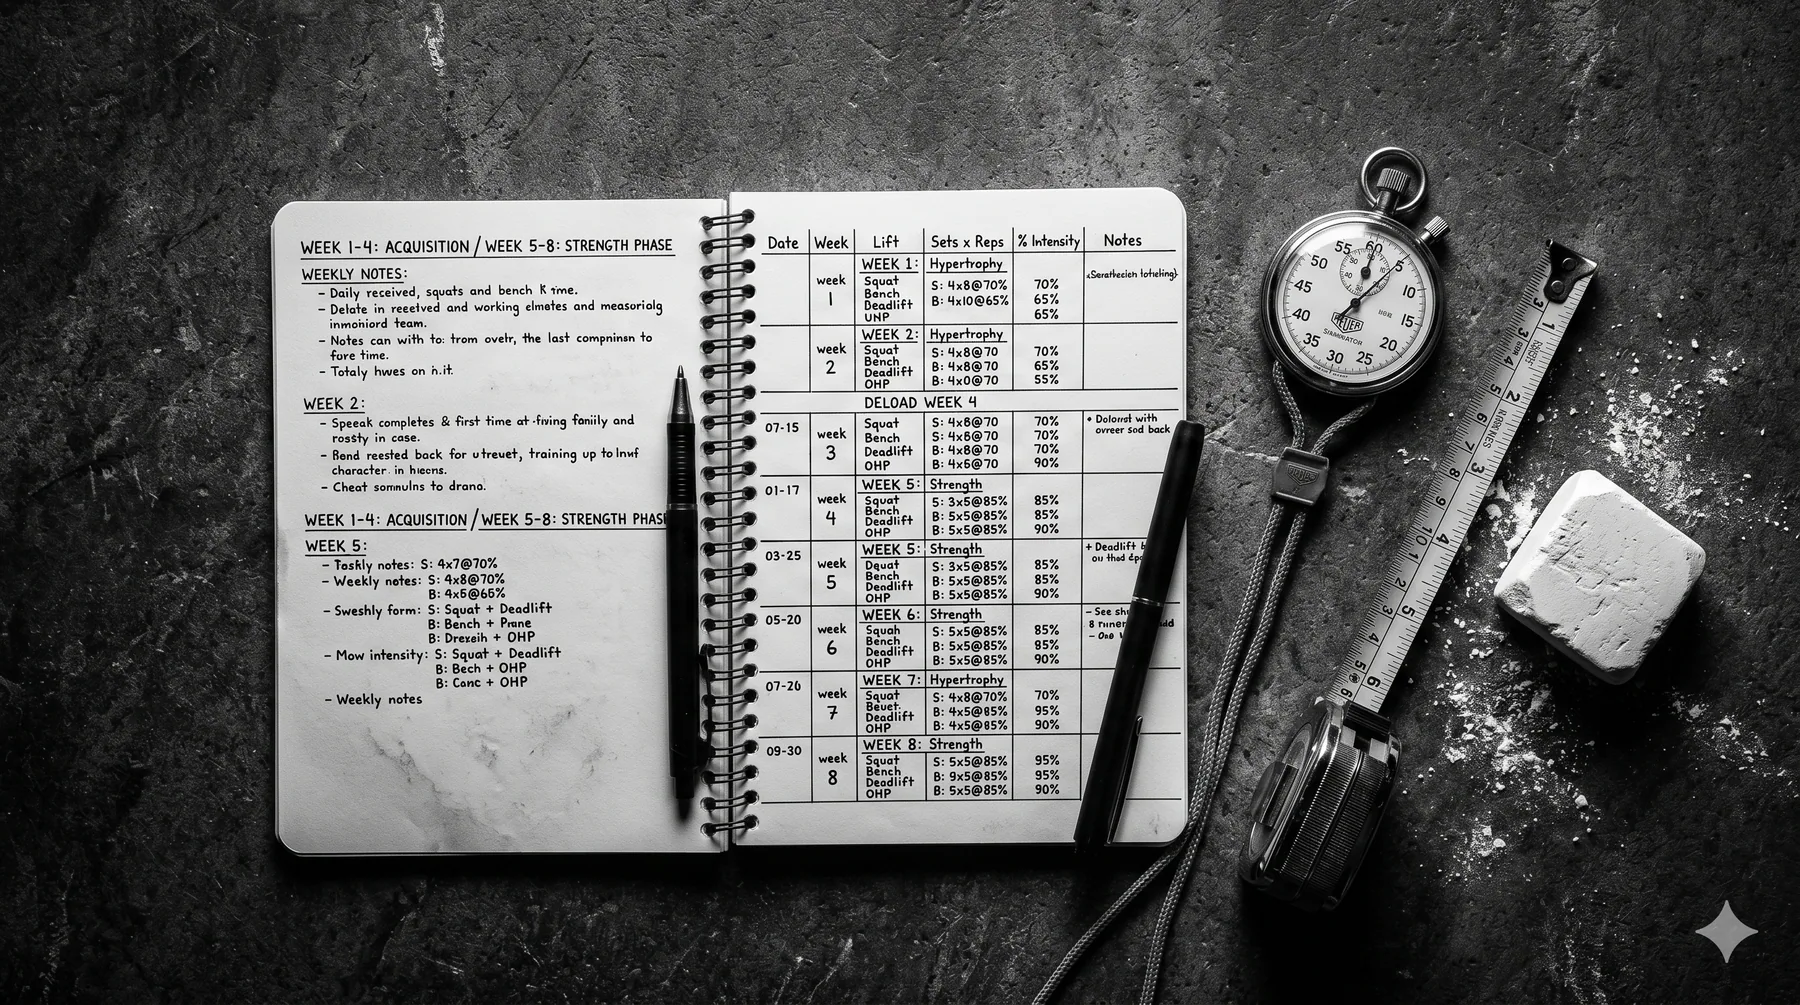 WEEK 1-4: ACQUISITION / WEEK 5-8: STRENGTH PHASE
WEEKLY NOTES:
- Daily received, squats and bench time.
- Delate in reeelved and working elmetes and measoriolg
inmoniord team.
- Notes can with to: trom ovetr, the last compninsn to
fore time.
- Totaly hwes on
WEEK 2:
- Speeak completes & first time at fiving faniily and
rossty in case.
- Rend reested back for utreuet, training up to
character in
- Cheat somnulns to drano.
WEEK 1-4: ACQUISITION / WEEK 5-8: STRENGTH PHASE
WEEK 5:
- Toskly notes: S: 4x7@70%
- Weekly notes: S: 4x8@70%
B: 4x5@65%
- Sweshly form: S: Squat + Deadlift
B: Bench + Prune
B: Drexeih + OHP
- Mow intensity: S: Squat + Deadlift
B: Bech + OHP
B: Conc + OHP
- Weekly notes
Date Week Lift Sets x Reps % Intensity Notes
WEEK 1: Hypertrophy
week 1
Squat S: 4x8@70% 70%
Bench B: 4x10@65% 65%
Deadlift 65%
UNP
WEEK 2: Hypertrophy
week 2
Squat S: 4x8@70 70%
Bench B: 4x8@70 65%
Deadlift B: 4x0@70 55%
OHP
DELOAD WEEK 4
07-15 week 3
Squat S: 4x6@70 70% • Dolorst with
Bench B: 4x6@70 70% ovreer sod back
Deadlift B: 4x8@70 70%
OHP B: 4x6@70 90%
01-17 WEEK 5: Strength
week 4
Squat S: 3x5@85% 85%
Bench B: 5x5@85% 85%
Deadlift B: 5x5@85% 90%
OHP
03-25 WEEK 5: Strength + Deadlift
week 5
Dquat S: 3x5@85% 85%
Bench B: 5x5@85% 85%
Deadlift B: 5x5@85% 90%
OHP
05-20 WEEK 6: Strength - See
week 6
Squah S: 5x5@85% 85%
Bench B: 5x5@85% 85%
Deadlift B: 5x5@85% 90%
OHP
07-26 WEEK 7: Hypertrophy
week 7
Squat S: 4x8@70% 70%
Beuet. B: 4x5@85% 95%
Deadlift B: 4x5@85% 90%
OHP
09-30 WEEK 8: Strength
week 8
Squat S: 5x5@85% 95%
Bench B: 9x5@85% 95%
Deadlift B: 5x5@85% 90%
OHP
55 60 5
50 10
45 15
40 20
35 30 25